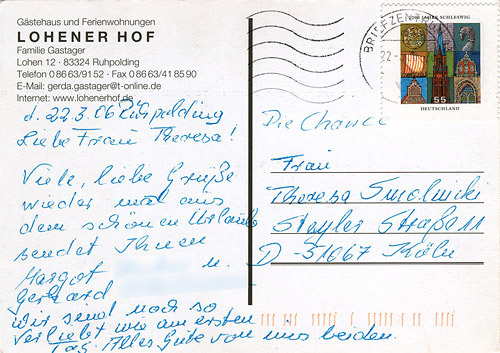 Gästehaus und Ferienwohnungen
LOHENER HOF
Familie Gastager
Lohen 12 · 83324 Ruhpolding
Telefon 0 86 63/91 52 · Fax 0 86 63/41 85 90
E-Mail: gerda.gastager@t-online.de
Internet: www.lohenerhof.de
d. 22.3.06 Ruhpolding
Liebe Frau Theresa!
Viele, liebe Grüße
wieder mal aus
dem schönen Urlaub
sendet Ihnen
Margot u.
Gerhard
Wir sind noch so
verliebt wie am ersten
Tag. Alles Gute von uns beiden.
BRIEFZENTRUM
22
1200 JAHRE SCHLESWIG
55
DEUTSCHLAND
Die Chance
Frau
Theresa Smolniki
Steyler Straße 11
D - 51067 Köln